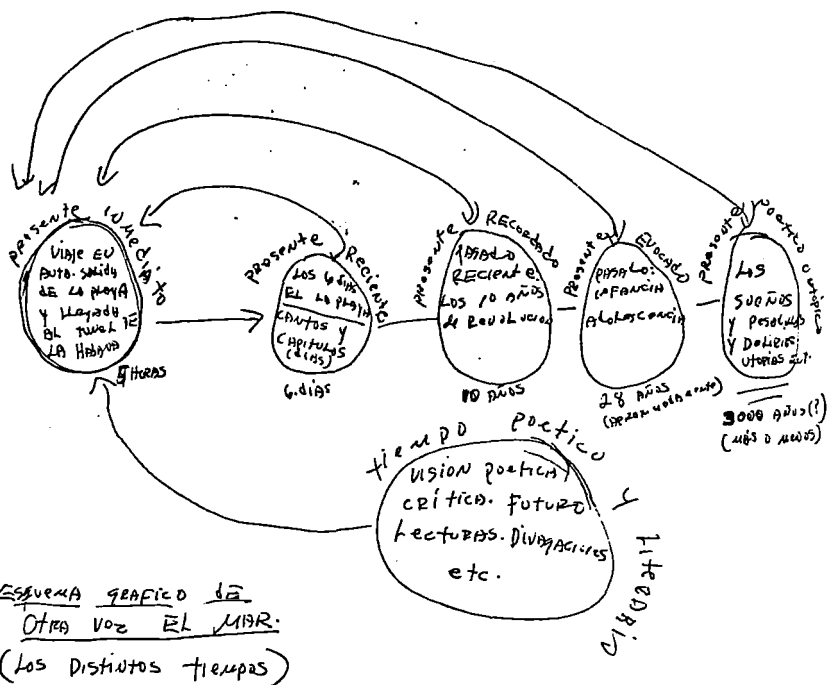 PRESENTE INMEDIATO
VIAJE EN
AUTO. SALIDA
DE LA PLAYA
Y LLEGADA
AL TUNEL DE
LA HABANA
HORAS
PRESENTE RECIENTE
LOS 6 DIAS
EL LA PLAYA
CANTOS Y
CAPITULOS
(DIAS)
6. DIAS
PRESENTE RECORDADO
PASADO
RECIENTE.
LOS 10 AÑOS
de REVOLUCION
10 AÑOS
PRESENTE EVOCADO
PASADO:
INFANCIA
ADOLESCENCIA
28 AÑOS
(APROXIMADAMENTE)
PRESENTE POETICO O UTOPICO
LOS
SUEÑOS
Y PESADILLAS
Y DELIRIOS
UTOPIAS ETC.
3000 AÑOS(?)
(MÁS O MENOS)
tiempo poetico y literario
VISION POETICA,
CRÍTICA. FUTURO
LECTURAS. DIVAGACIONES
etc.
ESQUEMA GRAFICO DE
OTRA VEZ EL MAR.
(LOS DISTINTOS TIEMPOS)